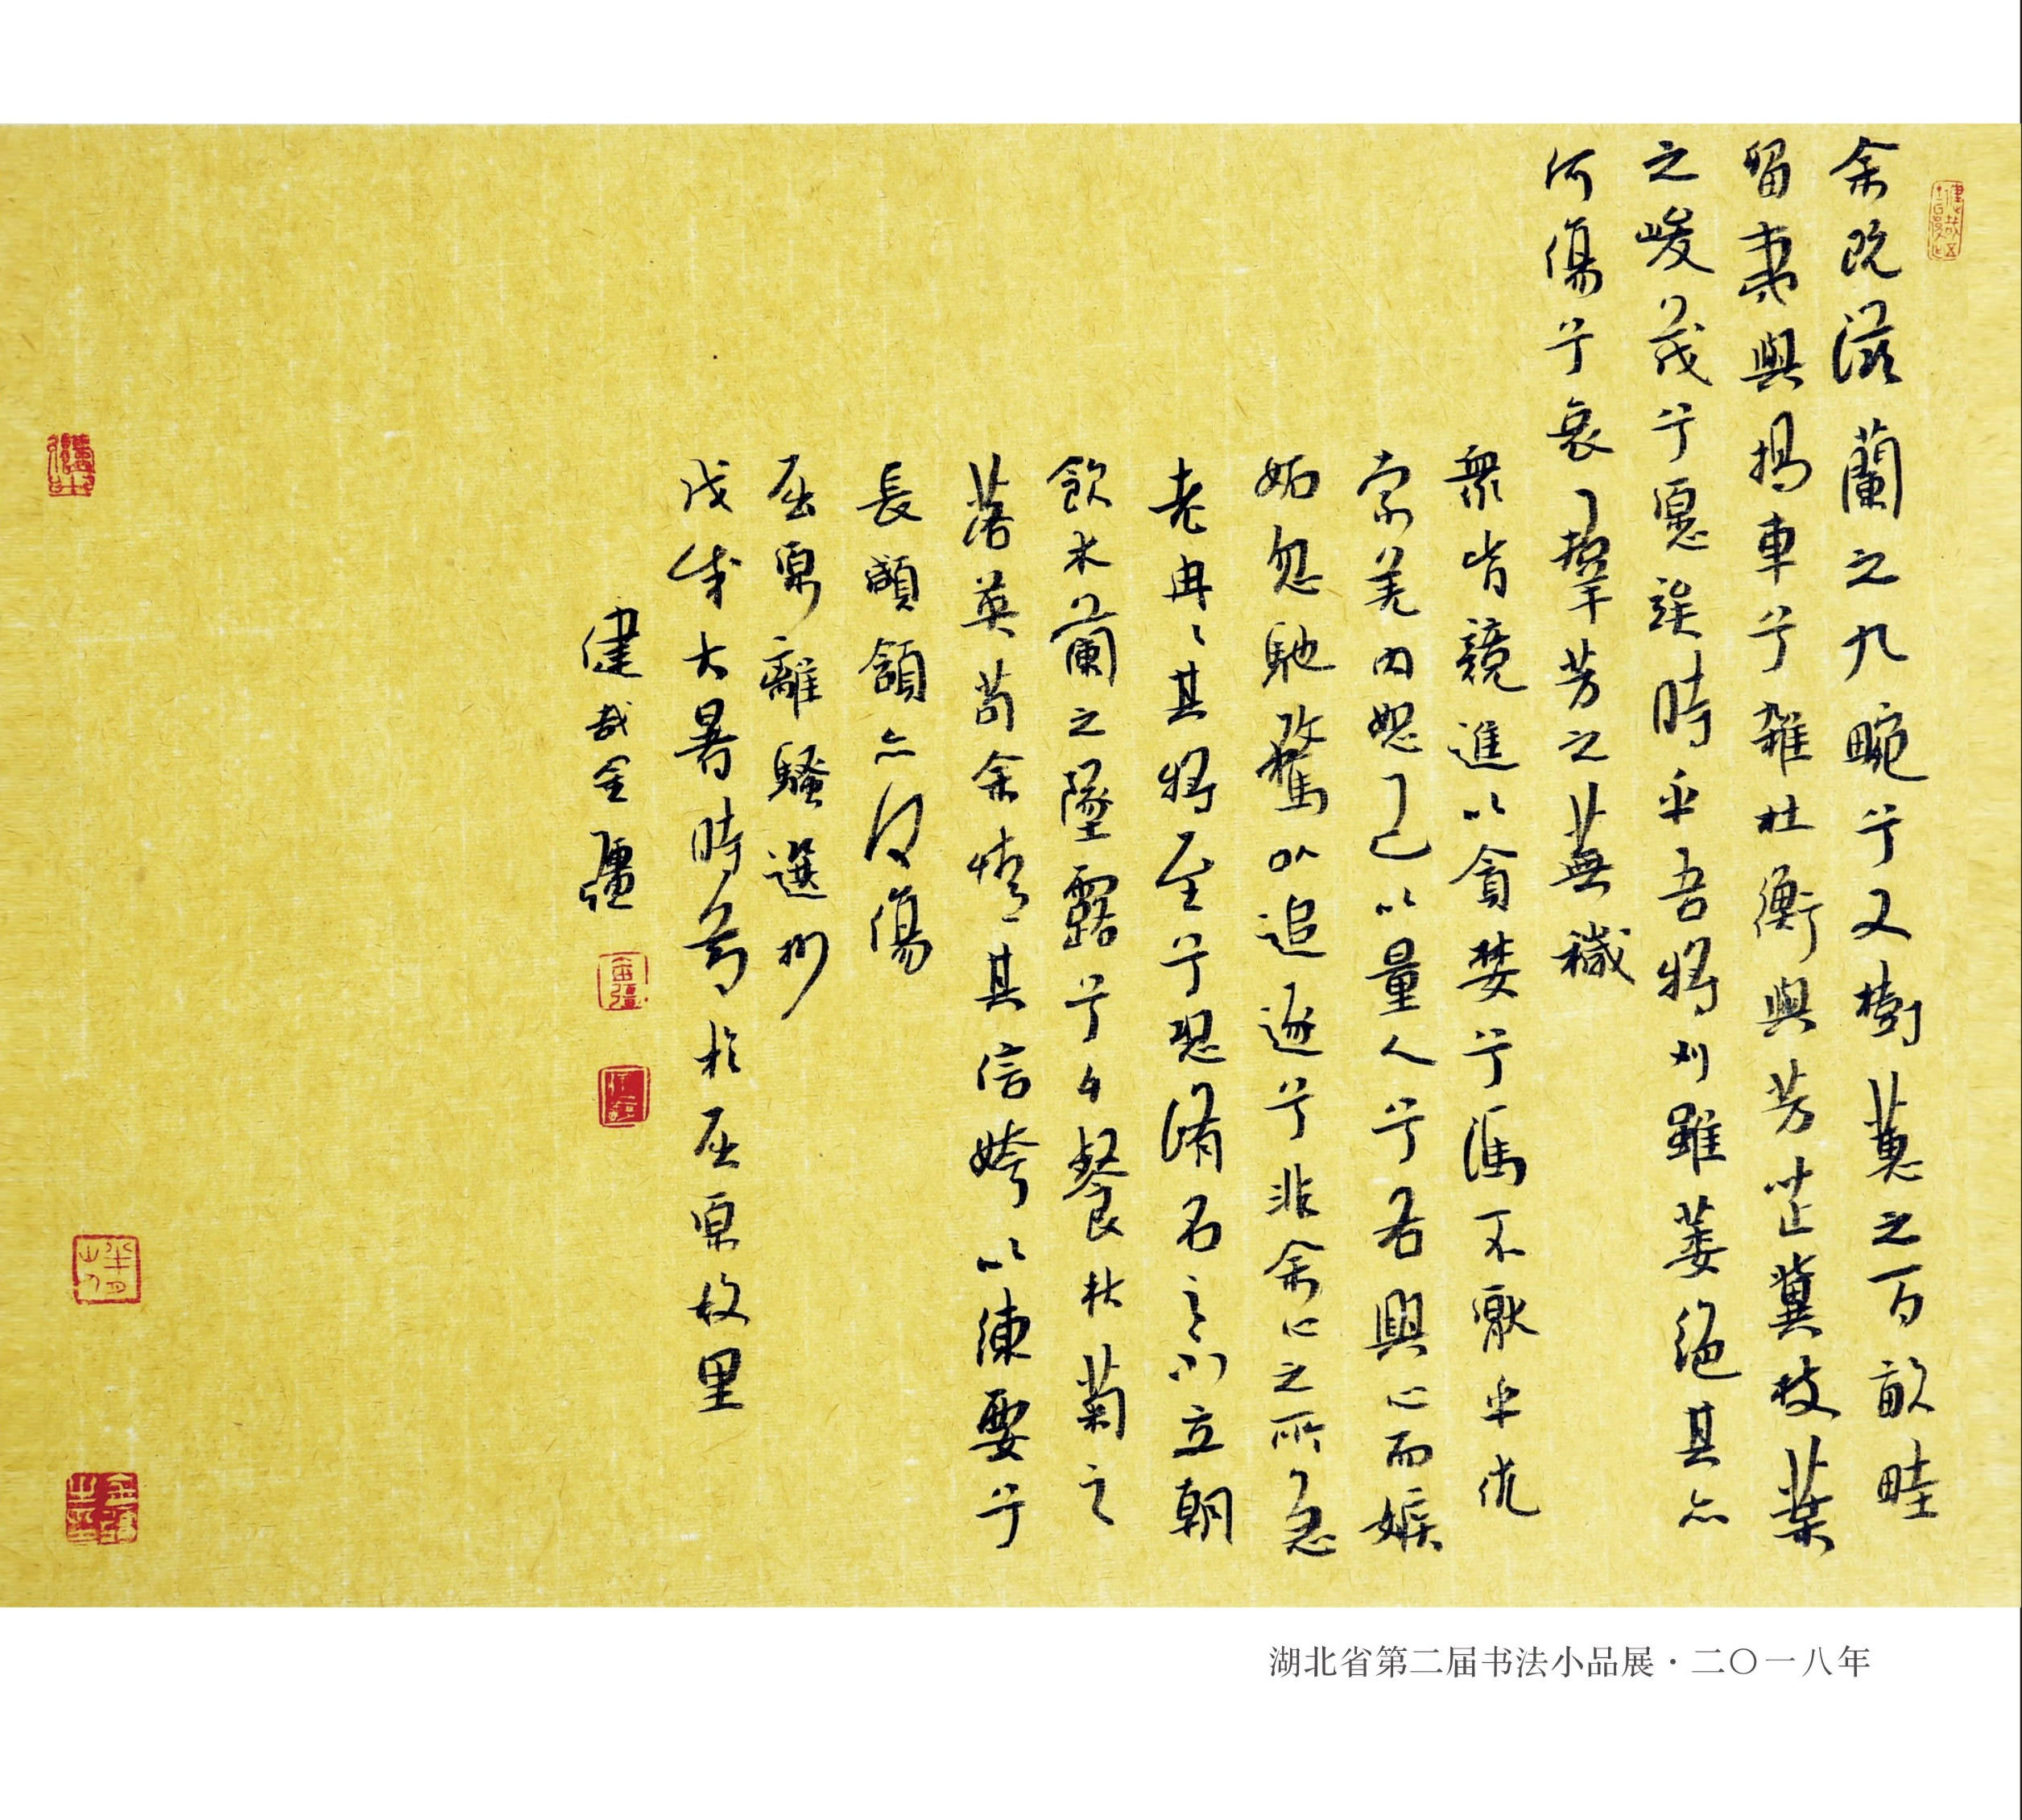 余既滋蘭之九畹兮又樹蕙之百畝畦
留夷與揭車兮雜杜衡與芳芷冀枝葉
之峻茂兮愿竢時乎吾將刈雖萎絕其亦
何傷兮哀羣芳之蕪穢
衆皆競進以貪婪兮馮不厭乎
羌內恕己以量人兮各興心而嫉
妬忽馳騖以追逐兮非余心之所急
老冉冉其將至兮恐脩名之不立朝
飲木蘭之墜露兮夕餐秋菊之
落英苟余情其信姱以練要兮
長顑頷亦何傷
屈原離騷選抄
戊戌大暑時節於屈原故里
建哉金疆
湖北省第二届书法小品展·二〇一八年